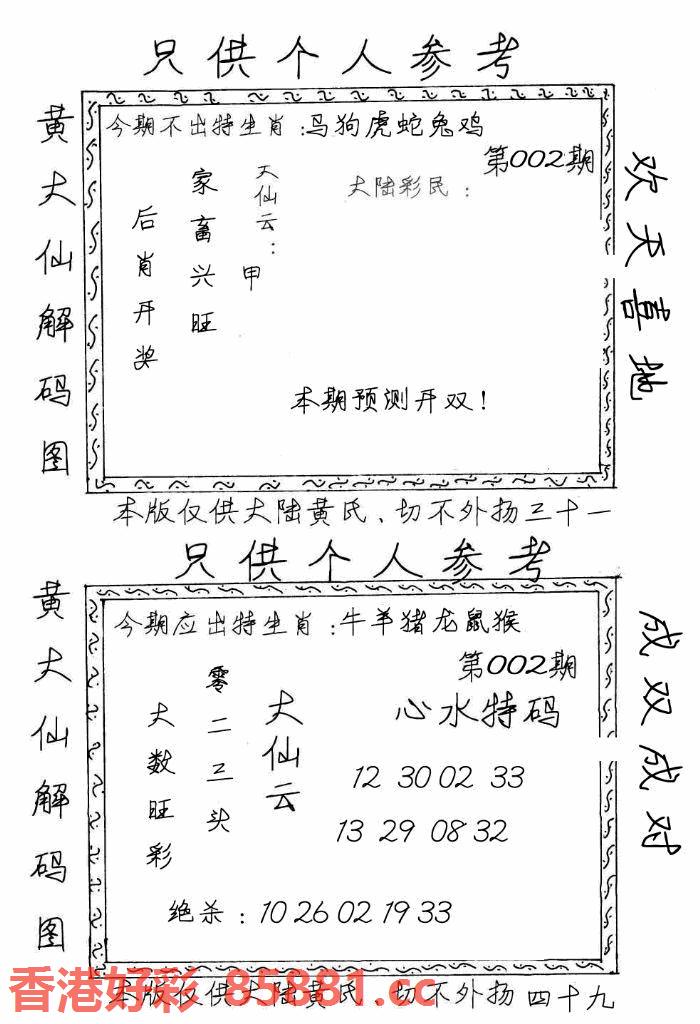 只供个人参考
黄大仙解码图
今期不出特生肖：马狗虎蛇兔鸡
第002期
大陆彩民：
大仙云：
甲
家畜兴旺
后肖开奖
本期预测开双！
欢天喜地
本版仅供大陆黄氏、切不外扬三十一
只供个人参考
黄大仙解码图
今期应出特生肖：牛羊猪龙鼠猴
第002期
心水特码
大仙云
零二三头
大数旺彩
12 30 02 33
13 29 08 32
绝杀：10 26 02 19 33
成双成对
本版仅供大陆黄氏、切不外扬四十九
香港好彩 85881.cc